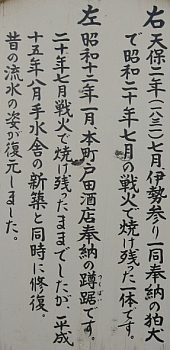 右 天保二年(一八三一)七月伊勢参り一同奉納の狛犬
で昭和二十年七月の戦火で焼け残った一体です。
左 昭和十二年一月、本町戸田酒店奉納の蹲踞です。
つくばい
二十年七月戦火で焼け残ったままでしたが、平成
十五年八月手水舎の新築と同時に修復、
昔の流水の姿が復元しました。